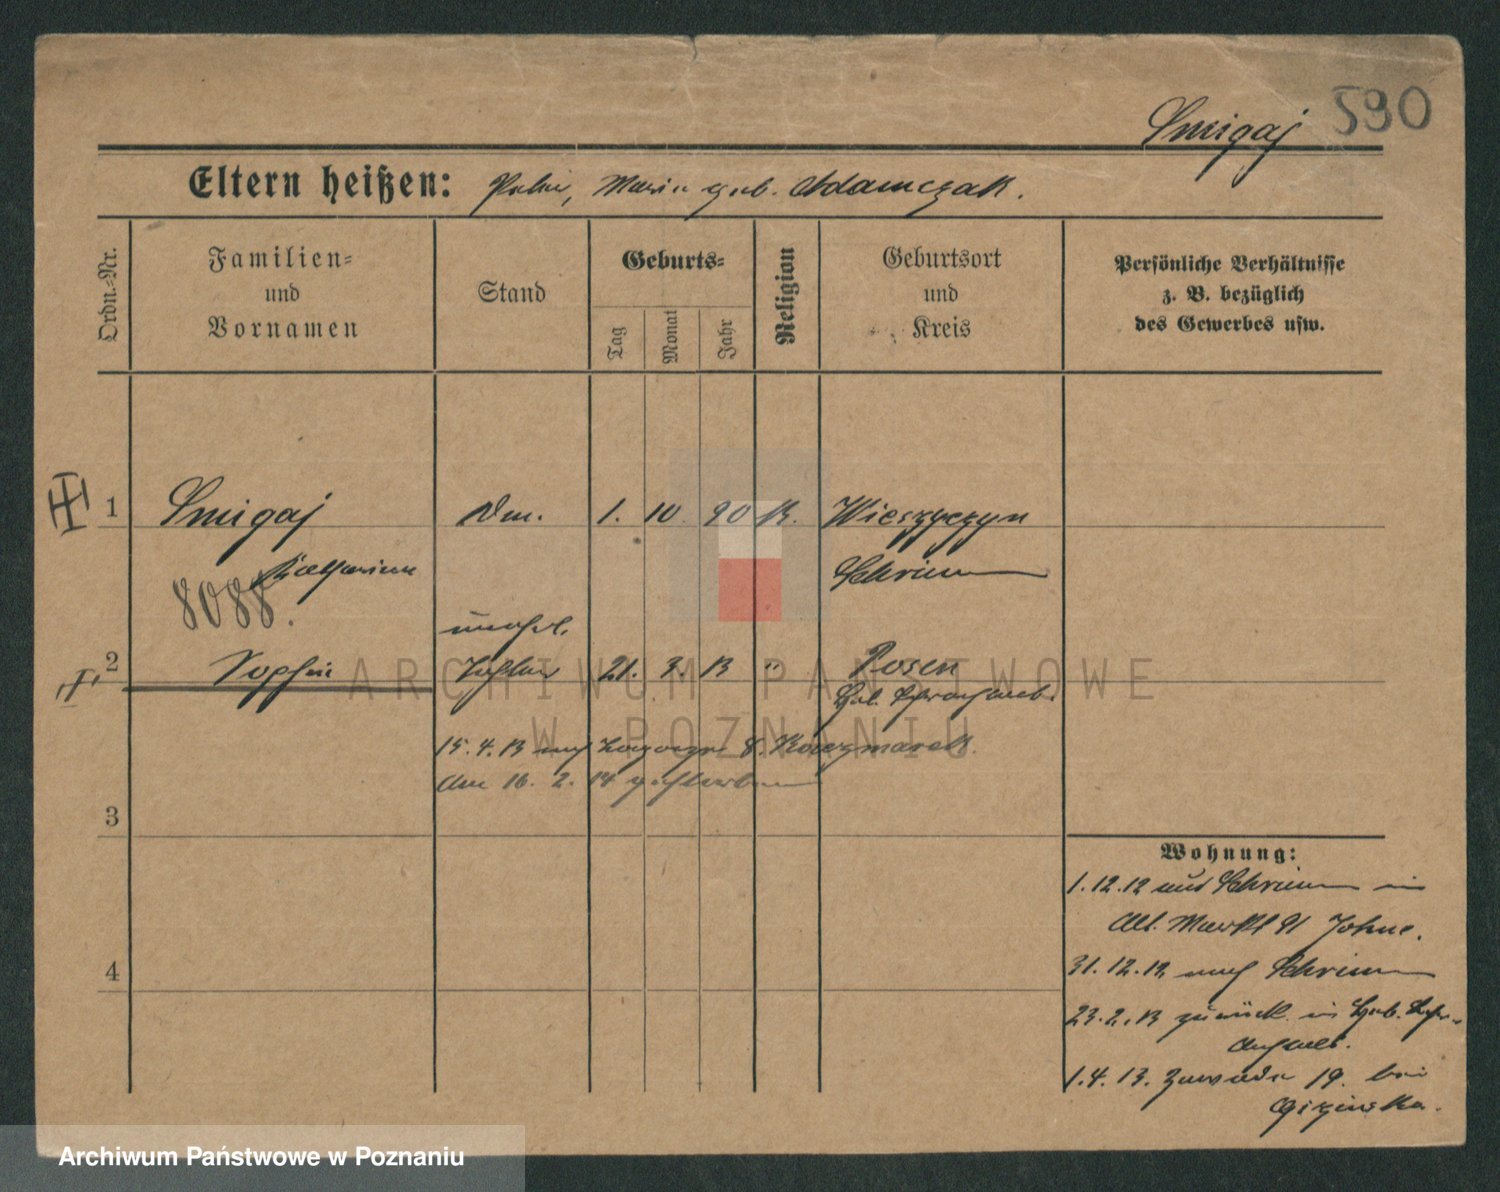 Smigaj 590
Eltern heißen: Maria geb. Adamczak.
Ordn.-Nr.
Familien-
und
Vornamen
Stand
Geburts-
Tag
Monat
Jahr
Religion
Geburtsort
und
Kreis
Persönliche Verhältnisse
z. B. bezüglich
des Gewerbes usw.
1 Smigaj 1. 10 90 K.
Katharina Schrimm
8088.
unehel.
2 Sophie Tochter 21. 3. 13 " Posen
ARCHIWUM PAŃSTWOWE
W POZNANIU
15.4.13 nach b. Kaczmarek.
am 16. 2. 14 gestorben
3
4
Wohnung:
1.12.12 aus Schrimm in
Alt. Markt 91 Johne.
31.12.12 nach Schrimm
23.2.13 zurück in Heb. Lehr-
Anstalt.
1.4.13. Zawade 19. bei
Gizinska.
Archiwum Państwowe w Poznaniu